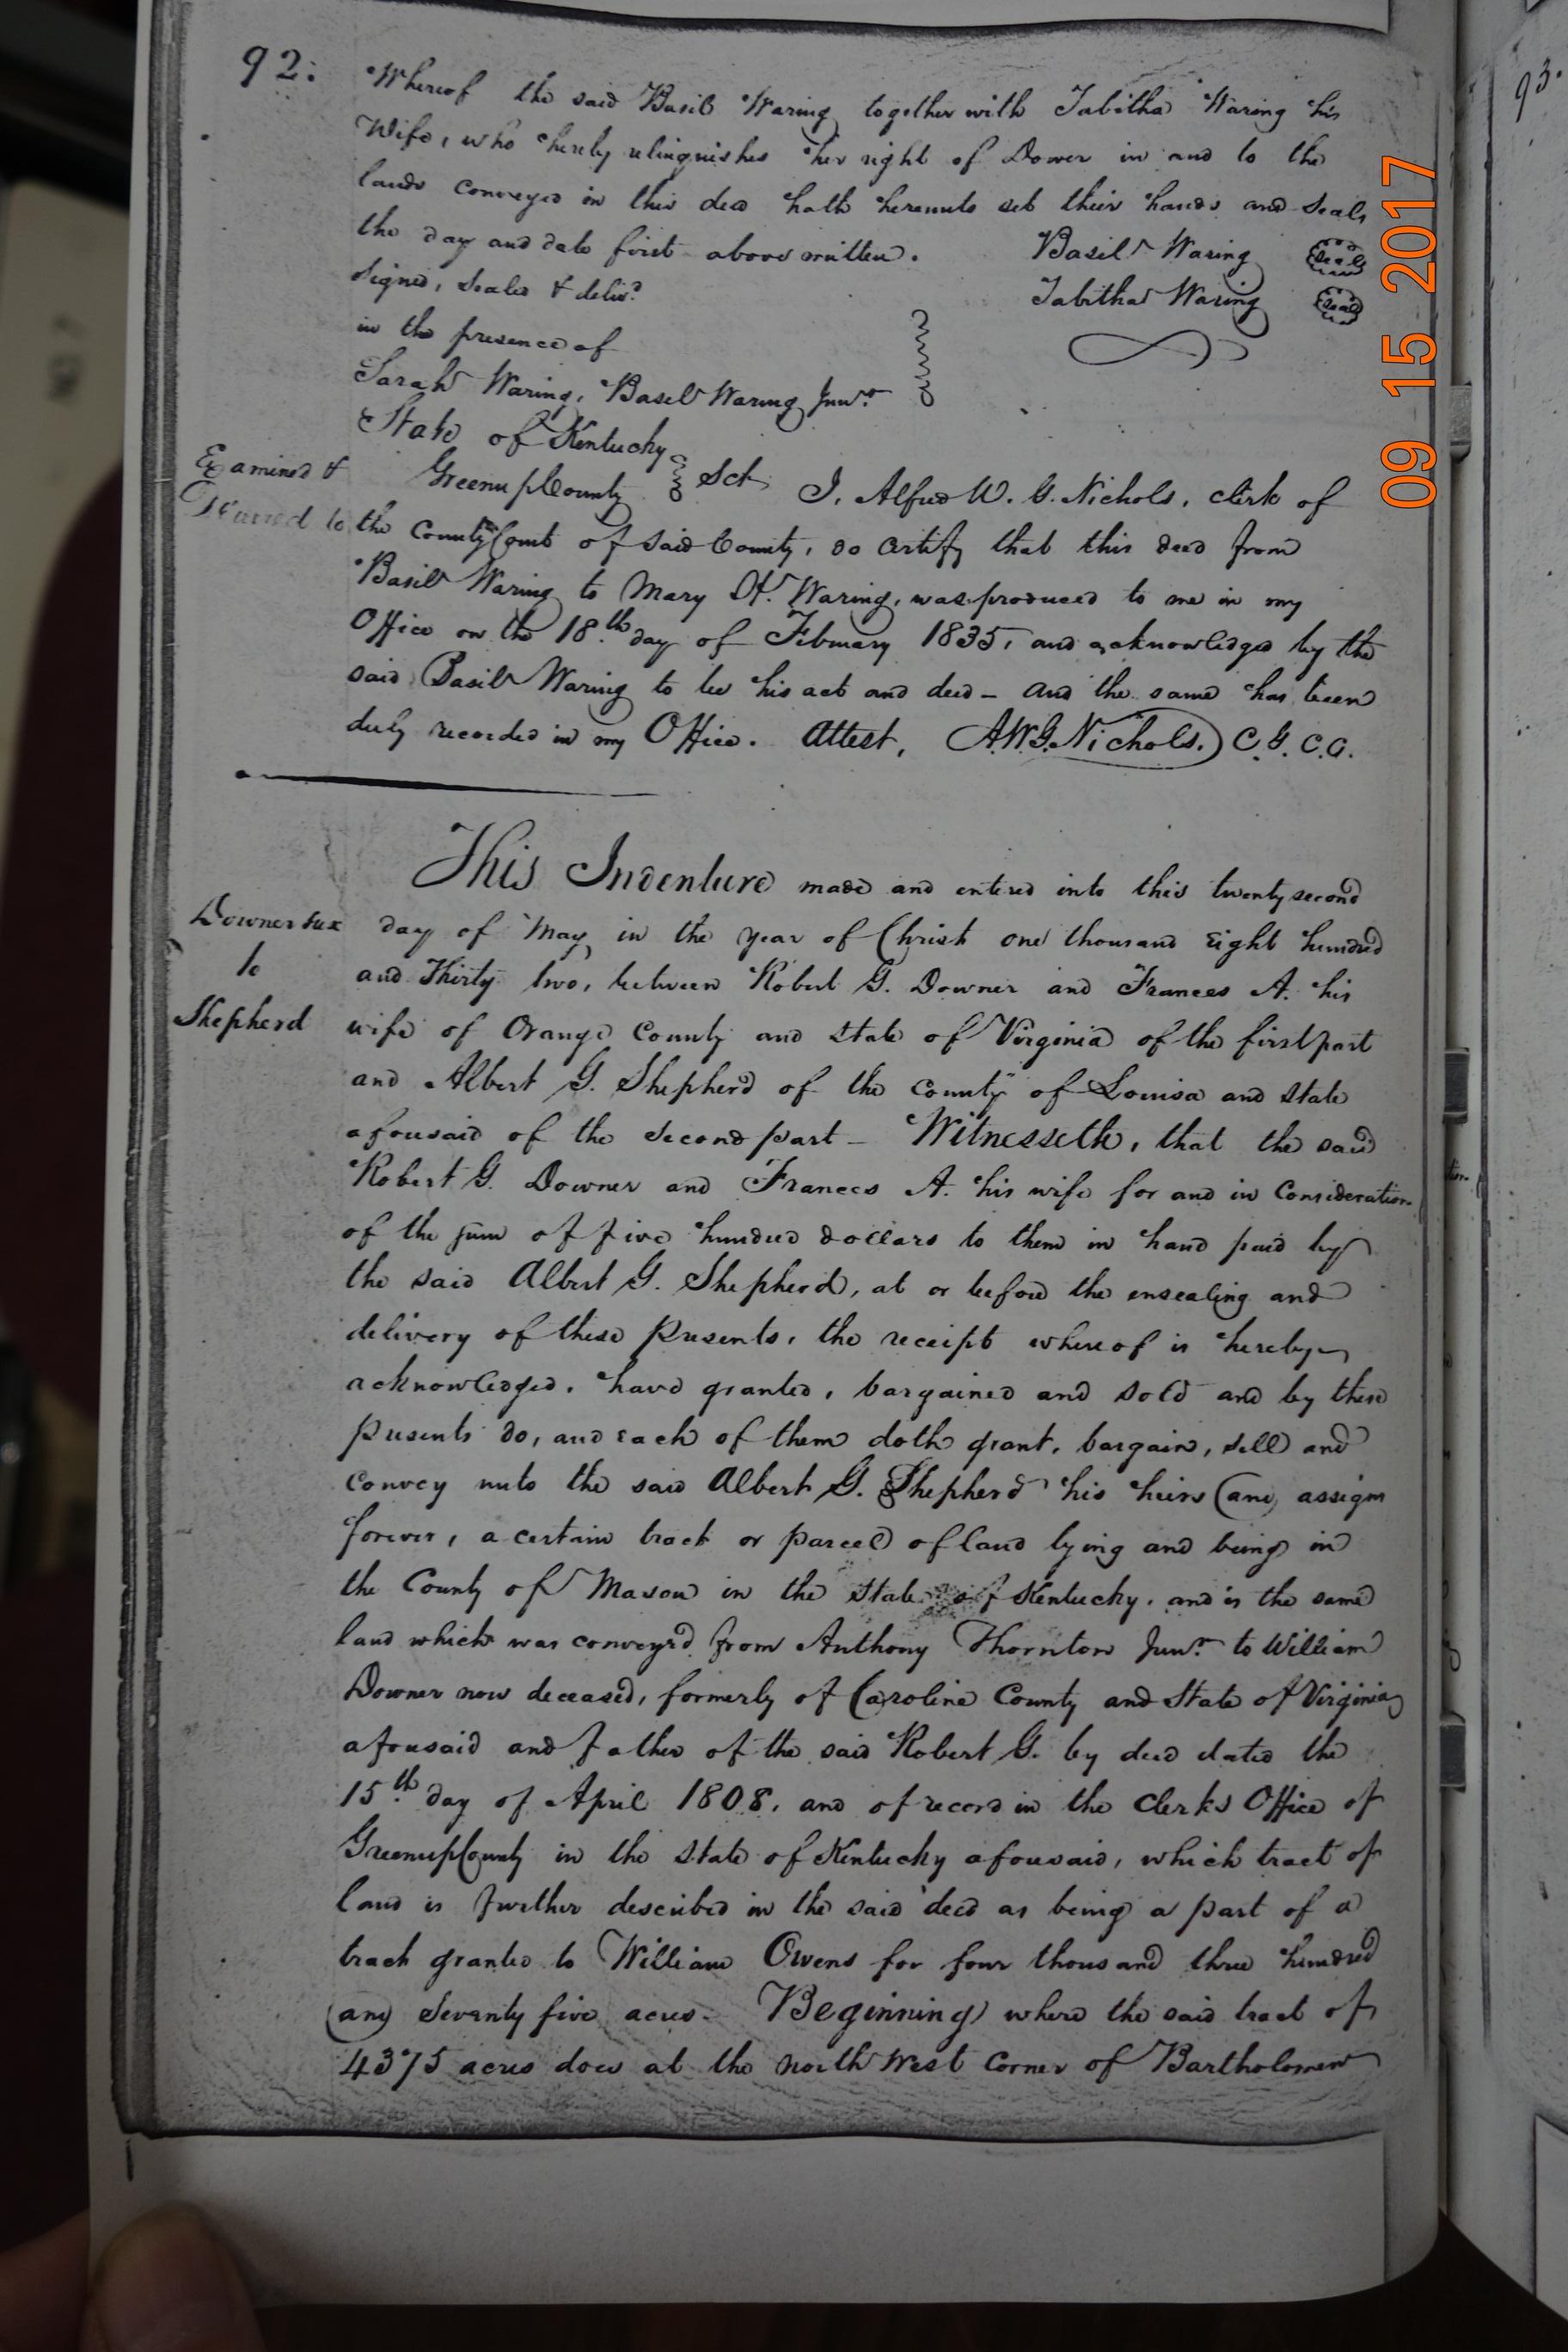 92:
Whereof the said Basil Waring together with Tabitha Waring his
Wife, who hereby relinquishes her right of Dower in and to the
lands conveyed in this deed hath hereunto set their hands and seals
the day and date first above written. Basil Waring Seal
Signed, Sealed & delivd. Tabitha Waring Seal
in the presence of
Sarah Waring, Basil Waring Junr.
State of Kentucky
Greenup County Sct. I, Alfred W. G. Nichols, clerk of
Examined &
to
the County Court of said County, do certify that this deed from
Basil Waring to Mary H. Waring, was produced to me in my
Office on the 18.th day of February 1835, and acknowledged by the
said Basil Waring to be his act and deed - and the same has been
duly recorded in my Office. Attest, A.W.G. Nichols. C. G. C. C.
This Indenture made and entered into this twenty second
Downer &ux
to
Shepherd
day of May, in the year of Christ one thousand Eight hundred
and Thirty two, between Robert G. Downer and Frances A. his
wife of Orange County and State of Virginia of the first part
and Albert G. Shepherd of the County of Louisa and State
aforesaid of the Second part - Witnesseth, that the said
Robert G. Downer and Frances A. his wife for and in Consideration
of the sum of five hundred dollars to them in hand paid by
the said Albert G. Shepherd, at or before the ensealing and
delivery of these Presents, the receipt whereof is hereby
acknowledged, have granted, bargained and sold and by these
presents do, and each of them doth grant, bargain, sell and
convey unto the said Albert G. Shepherd his heirs and assigns
forever, a certain tract or parcel of land lying and being in
the County of Mason in the State of Kentucky, and is the same
land which was conveyed from Anthony Thornton Junr. to William
Downer now deceased, formerly of Caroline County and State of Virginia
aforesaid and father of the said Robert G. by deed dated the
15.th day of April 1808, and of record in the Clerks Office of
Greenup County in the State of Kentucky aforesaid, which tract of
land is further described in the said deed as being a part of a
tract granted to William Owens for four thousand three hundred
and Seventy five acres - Beginning where the said tract of
4375 acres does at the north West Corner of Bartholomew
09 15 2017
93.